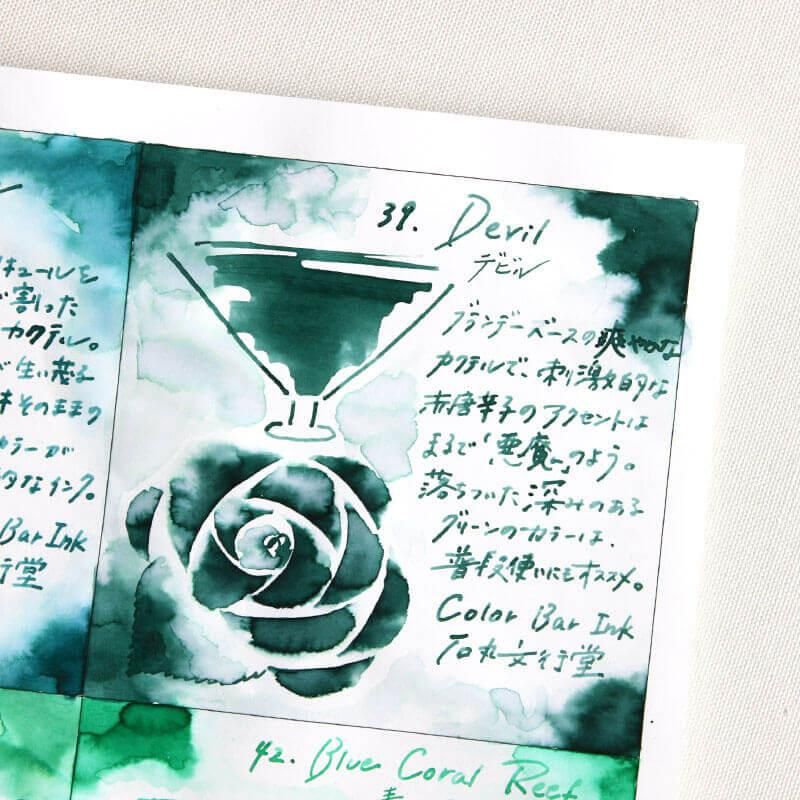 キュールを
割った
カクテル。
生い茂る
そのままの
カラーが
的なインク。
Bar Ink
行堂
39. Devil
デビル
ブランデーベースの爽やかな
カクテルで、刺激的な
赤唐辛子のアクセントは
まるで「悪魔」のよう。
落ちついた深みのある
グリーンのカラーは、
普段使いにもオススメ。
Color Bar Ink
石丸文行堂
42. Blue Coral Reef